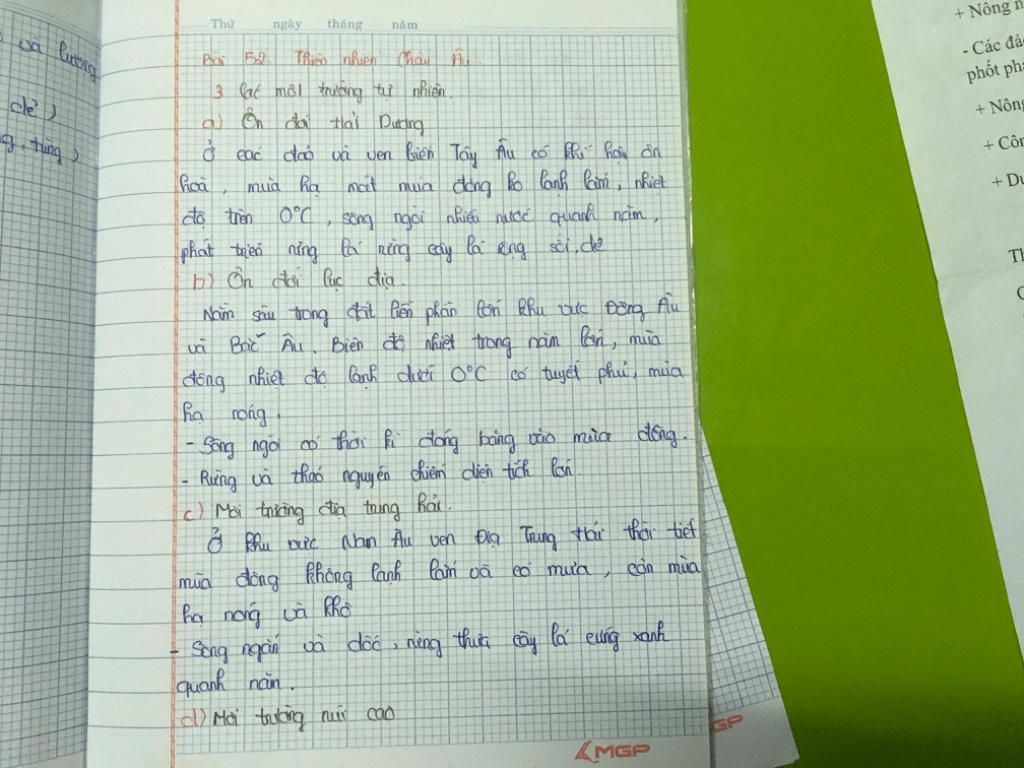 và lương
dẻ)
g, tùng)
Thứ ngày tháng năm
Bài 52. Thiên nhiên Châu Âu.
3 Các môi trường tự nhiên.
a) Ôn đới Hải Dương
Ở các đảo và ven biển Tây Âu có khí hậu ôn
hoà, mùa hạ mát mùa đông ko lạnh lắm, nhiệt
độ trên 0°C, sông ngòi nhiều nước quanh năm,
phát triển rừng lá rừng cây lá rộng sồi, dẻ
b) Ôn đới lục địa.
Nằm sâu trong đất liền phần lớn khu vực Đông Âu
và Bắc Âu. Biên độ nhiệt trong năm lớn, mùa
đông nhiệt độ lạnh dưới 0°C có tuyết phủ, mùa
hạ nóng.
- Sông ngòi có thời kì đóng băng vào mùa đông.
- Rừng và thảo nguyên chiếm diện tích lớn
c) Môi trường địa trung hải.
Ở khu vực Nam Âu ven Địa Trung Hải thời tiết
mùa đông không lạnh lắm và có mưa, còn mùa
hạ nóng và khô
- Sông ngắn và dốc, rừng thưa cây lá cứng xanh
quanh năm.
d) Môi trường núi cao
MGP
GP
+ Nông n
- Các đả
phốt pha
+ Nông
+ Côn
+ Du
Th